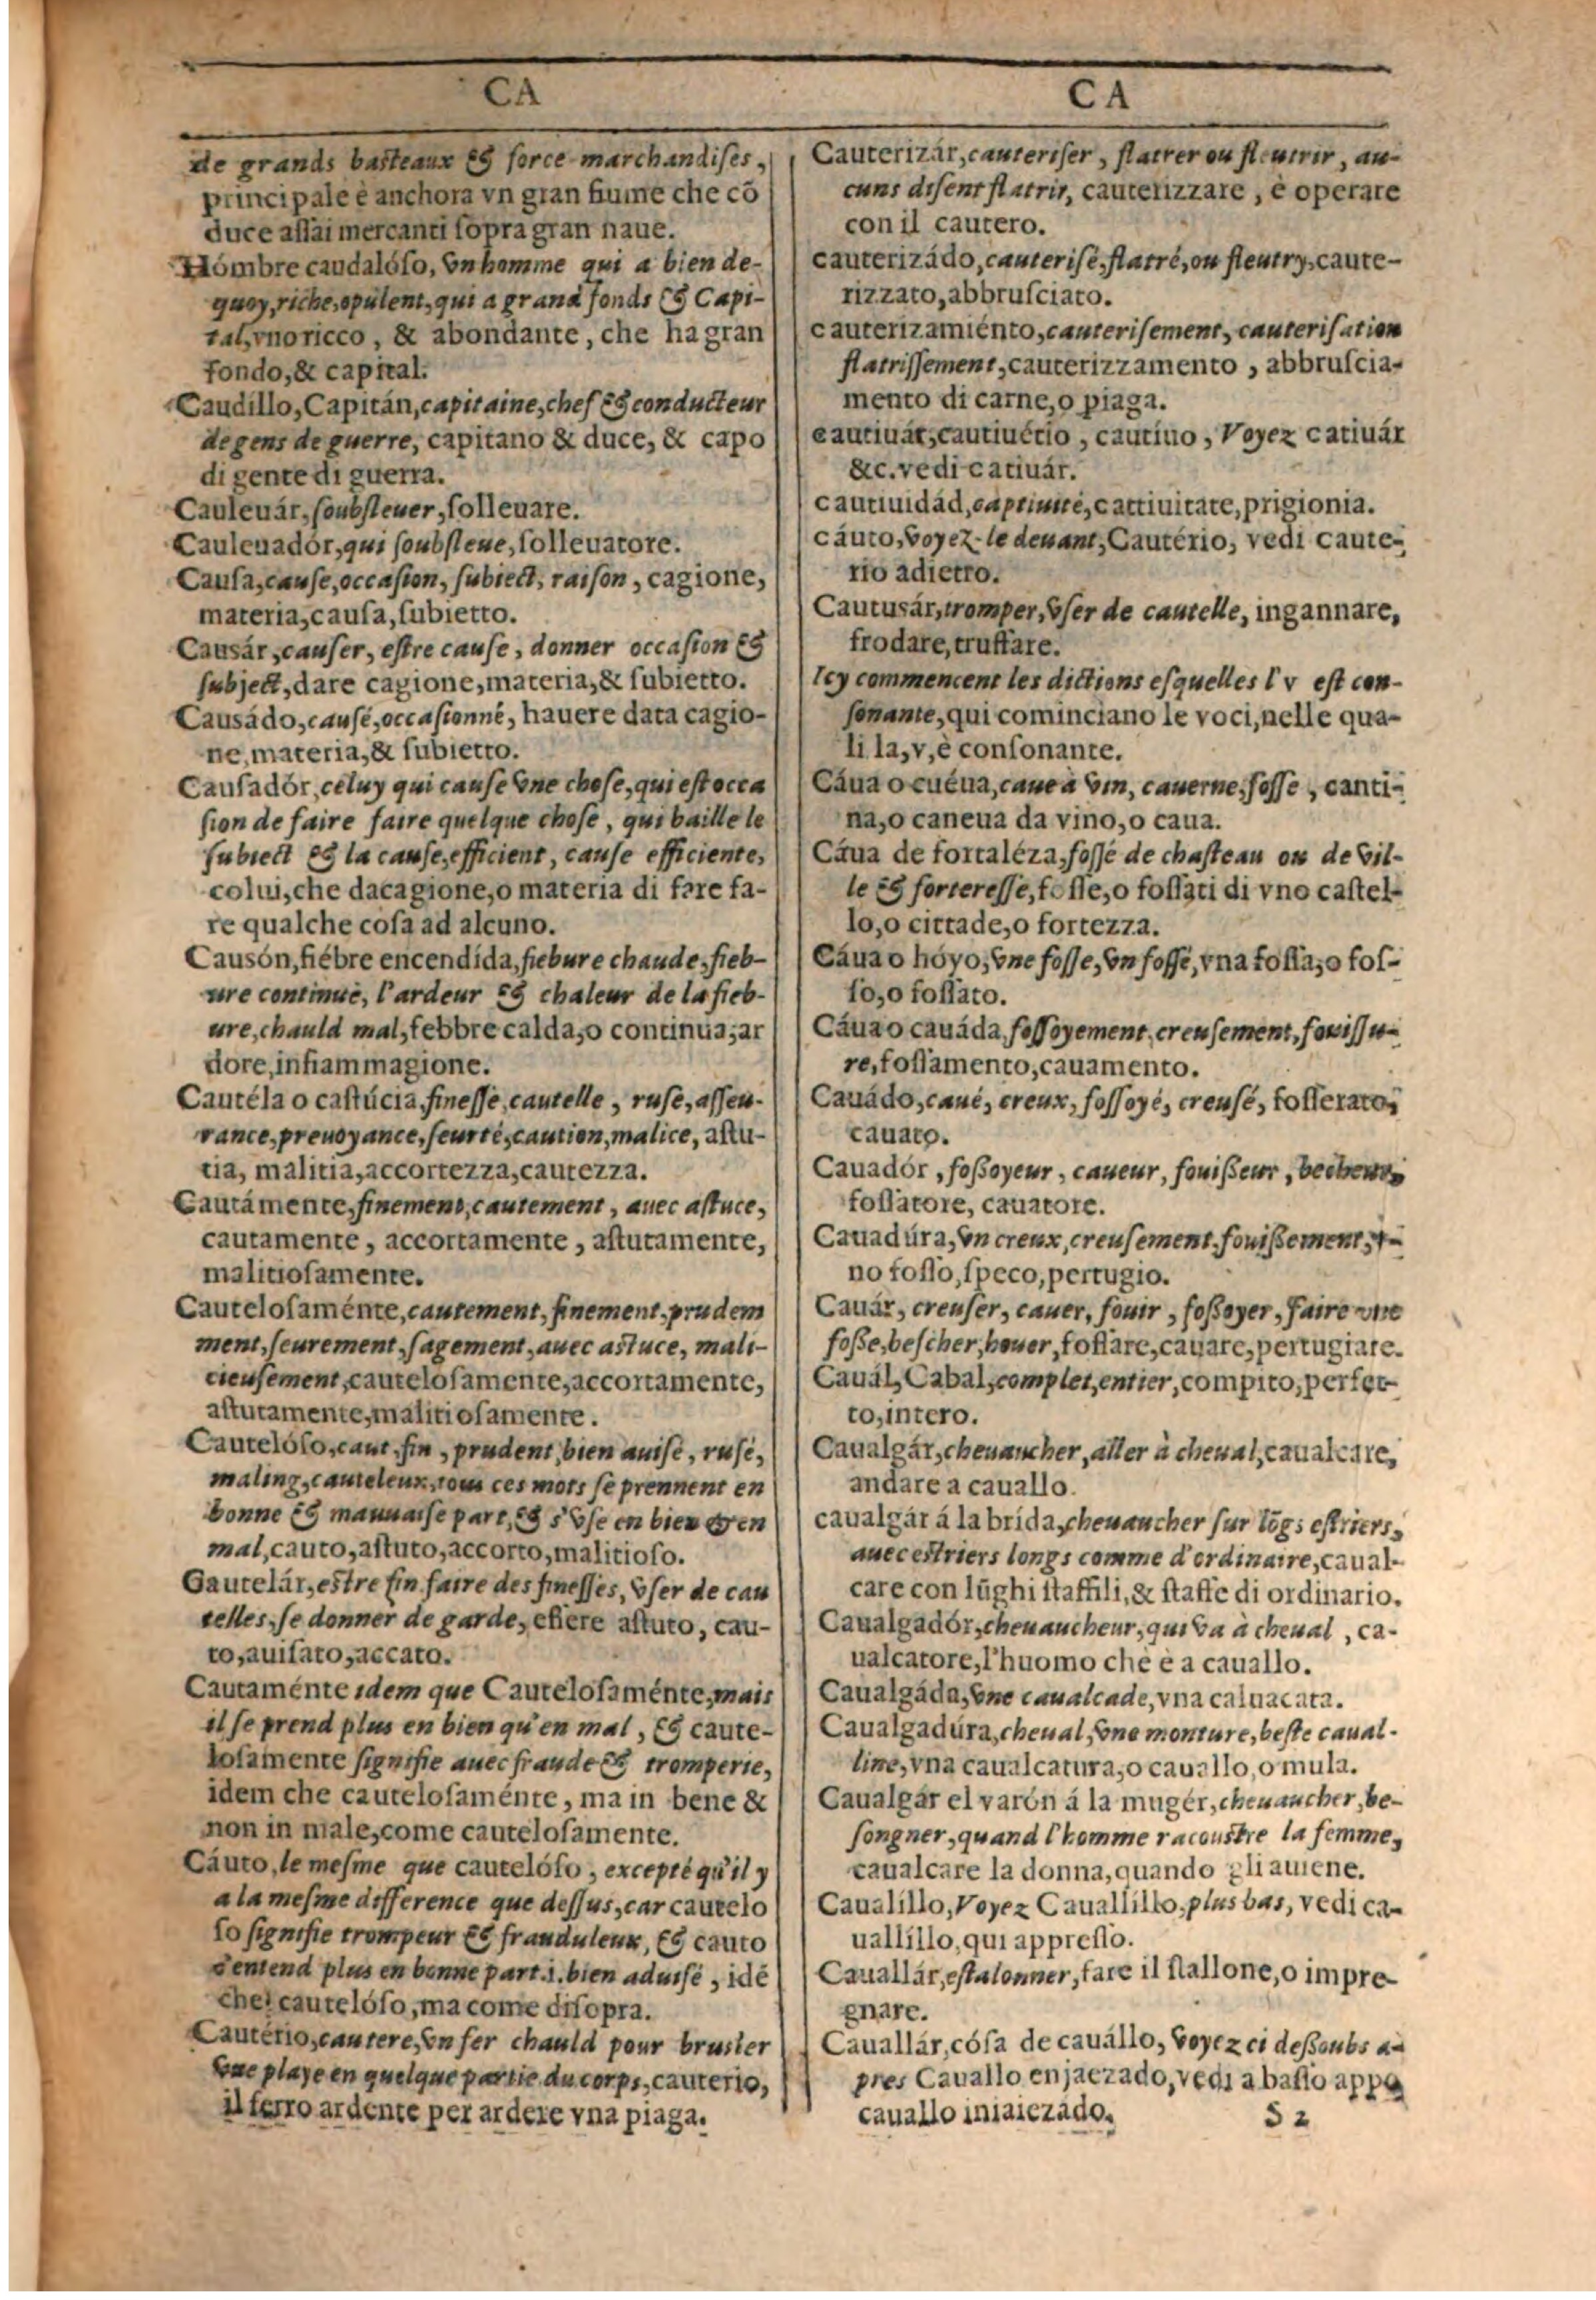 CA
de grands basteaux & force marchandiſes,
principale è anchora vn gran fiume che cõ
duce aſſai mercanti ſopra gran naue.
Hómbre caudalóſo, vn homme qui a bien de-
quoy, riche, opulent, qui a grand fonds & Capi-
tal, vno ricco, & abondante, che ha gran
fondo, & capital.
Caudillo, Capitán, capitaine, chef & conducteur
de gens de guerre, capitano & duce, & capo
di gente di guerra.
Cauleuár, ſoubſleuer, ſolleuare.
Cauleuadór, qui ſoubſleue, ſolleuatore.
Cauſa, cauſe, occaſion, ſubiect, raiſon, cagione,
materia, cauſa, ſubietto.
Causár, cauſer, eſtre cauſe, donner occaſion &
ſubject, dare cagione, materia, & ſubietto.
Causádo, cauſé, occaſionné, hauere data cagio-
ne, materia, & ſubietto.
Cauſadór, celuy qui cauſe vne choſe, qui eſt occa
ſion de faire faire quelque choſe, qui baille le
ſubiect & la cauſe, efficient, cauſe efficiente,
colui, che da cagione, o materia di fare fa-
re qualche coſa ad alcuno.
Causón, fiébre encendída, fiebure chaude, fieb-
ure continuë, l'ardeur & chaleur de la fieb-
ure, chauld mal, febbre calda, o continua, ar
dore, infiammagione.
Cautéla o caſtúcia, fineſſe, cautelle, ruſe, aſſeu-
rance, preuoyance, ſeurté, caution, malice, aſtu-
tia, malitia, accortezza, cautezza.
Cautámente, finement, cautement, auec aſtuce,
cautamente, accortamente, aſtutamente,
malitioſamente.
Cauteloſaménte, cautement, finement, prudem
ment, ſeurement, ſagement, auec aſtuce, mali-
cieuſement, cauteloſamente, accortamente,
aſtutamente, malitioſamente.
Cautelóſo, caut, fin, prudent, bien auiſé, ruſé,
maling, cauteleux, tous ces mots ſe prennent en
bonne & mauuaiſe part, & s'vſe en bien & en
mal, cauto, aſtuto, accorto, malitioſo.
Gautelár, eſtre fin, faire des fineſſes, vſer de cau
telles, ſe donner de garde, eſſere aſtuto, cau-
to, auiſato, accato.
Cautaménte idem que Cauteloſaménte, mais
il ſe prend plus en bien qu'en mal, & caute-
loſamente ſignifie auec fraude & tromperie,
idem che cauteloſaménte, ma in bene &
non in male, come cauteloſamente.
Cáuto, le meſme que cautelóſo, excepté qu'il y
a la meſme difference que deſſus, car cautelo
ſo ſignifie trompeur & frauduleux, & cauto
s'entend plus en bonne part .i. bien aduiſé, idẽ
che cautelóſo, ma come diſopra.
Cautério, cautere, vn fer chauld pour bruſler
vne playe en quelque partie du corps, cauterio,
il ferro ardente per ardere vna piaga.
CA
Cauterizár, cauteriſer, flatrer ou fleutrir, au-
cuns diſent flatrir, cauterizzare, è operare
con il cautero.
cauterizádo, cauteriſé, flatré, ou fleutry, caute-
rizzato, abbruſciato.
cauterizamiénto, cauteriſement, cauteriſation
flatriſſement, cauterizzamento, abbruſcia-
mento di carne, o piaga.
cautiuár, cautiuério, cautíuo, Voyez catiuár
&c. vedi catiuár.
cautiuidád, captiuité, cattiuitate, prigionia.
cáuto, voyez le deuant, Cautério, vedi caute-
rio adietro.
Cautusár, tromper, vſer de cautelle, ingannare,
frodare, truffare.
Icy commencent les dictions eſquelles l'v eſt con-
ſonante, qui cominciano le voci, nelle qua-
li la, v, è conſonante.
Cáua o cuéua, caue à vin, cauerne, foſſe, canti-
na, o caneua da vino, o caua.
Cáua de fortaléza, foſſé de chaſteau ou de vil-
le & fortereſſe, foſſe, o foſſati di vno caſtel-
lo, o cittade, o fortezza.
Cáua o hóyo, vne foſſe, vn foſſé, vna foſſa, o foſ-
ſo, o foſſato.
Cáua o cauáda, foſſoyement, creuſement, fouiſſu-
re, foſſamento, cauamento.
Cauádo, caué, creux, foſſoyé, creuſé, foſſerato,
cauato.
Cauadór, foſſoyeur, caueur, fouiſſeur, becheur,
foſſatore, cauatore.
Cauadúra, vn creux, creuſement, fouiſſement, v-
no foſſo, ſpeco, pertugio.
Cauár, creuſer, cauer, fouir, foſſoyer, faire vne
foſſe, beſcher, houer, foſſare, cauare, pertugiare.
Cauál, Cabal, complet, entier, compito, perfet-
to, intero.
Caualgár, cheuaucher, aller à cheual, caualcare,
andare a cauallo.
caualgár á la brída, cheuaucher ſur lõgs eſtriers,
auec eſtriers longs comme d'ordinaire, caual-
care con lũghi ſtaffili, & ſtaffe di ordinario.
Caualgadór, cheuaucheur, qui va à cheual, ca-
ualcatore, l'huomo chè è a cauallo.
Caualgáda, vne caualcade, vna caluacata.
Caualgadúra, cheual, vne monture, beſte caual-
line, vna caualcatura, o cauallo, o mula.
Caualgár el varón á la mugér, cheuaucher, be-
ſongner, quand l'homme racouſtre la femme,
caualcare la donna, quando gli auiene.
Caualíllo, Voyez Cauallíllo, plus bas, vedi ca-
uallíllo, qui appreſſo.
Cauallár, eſtalonner, fare il ſtallone, o impre-
gnare.
Cauallár, cóſa de cauállo, voyez ci deſſoubs a-
pres Cauallo enjaezado, vedi a baſſo appo
cauallo iniaiezádo.
S 2